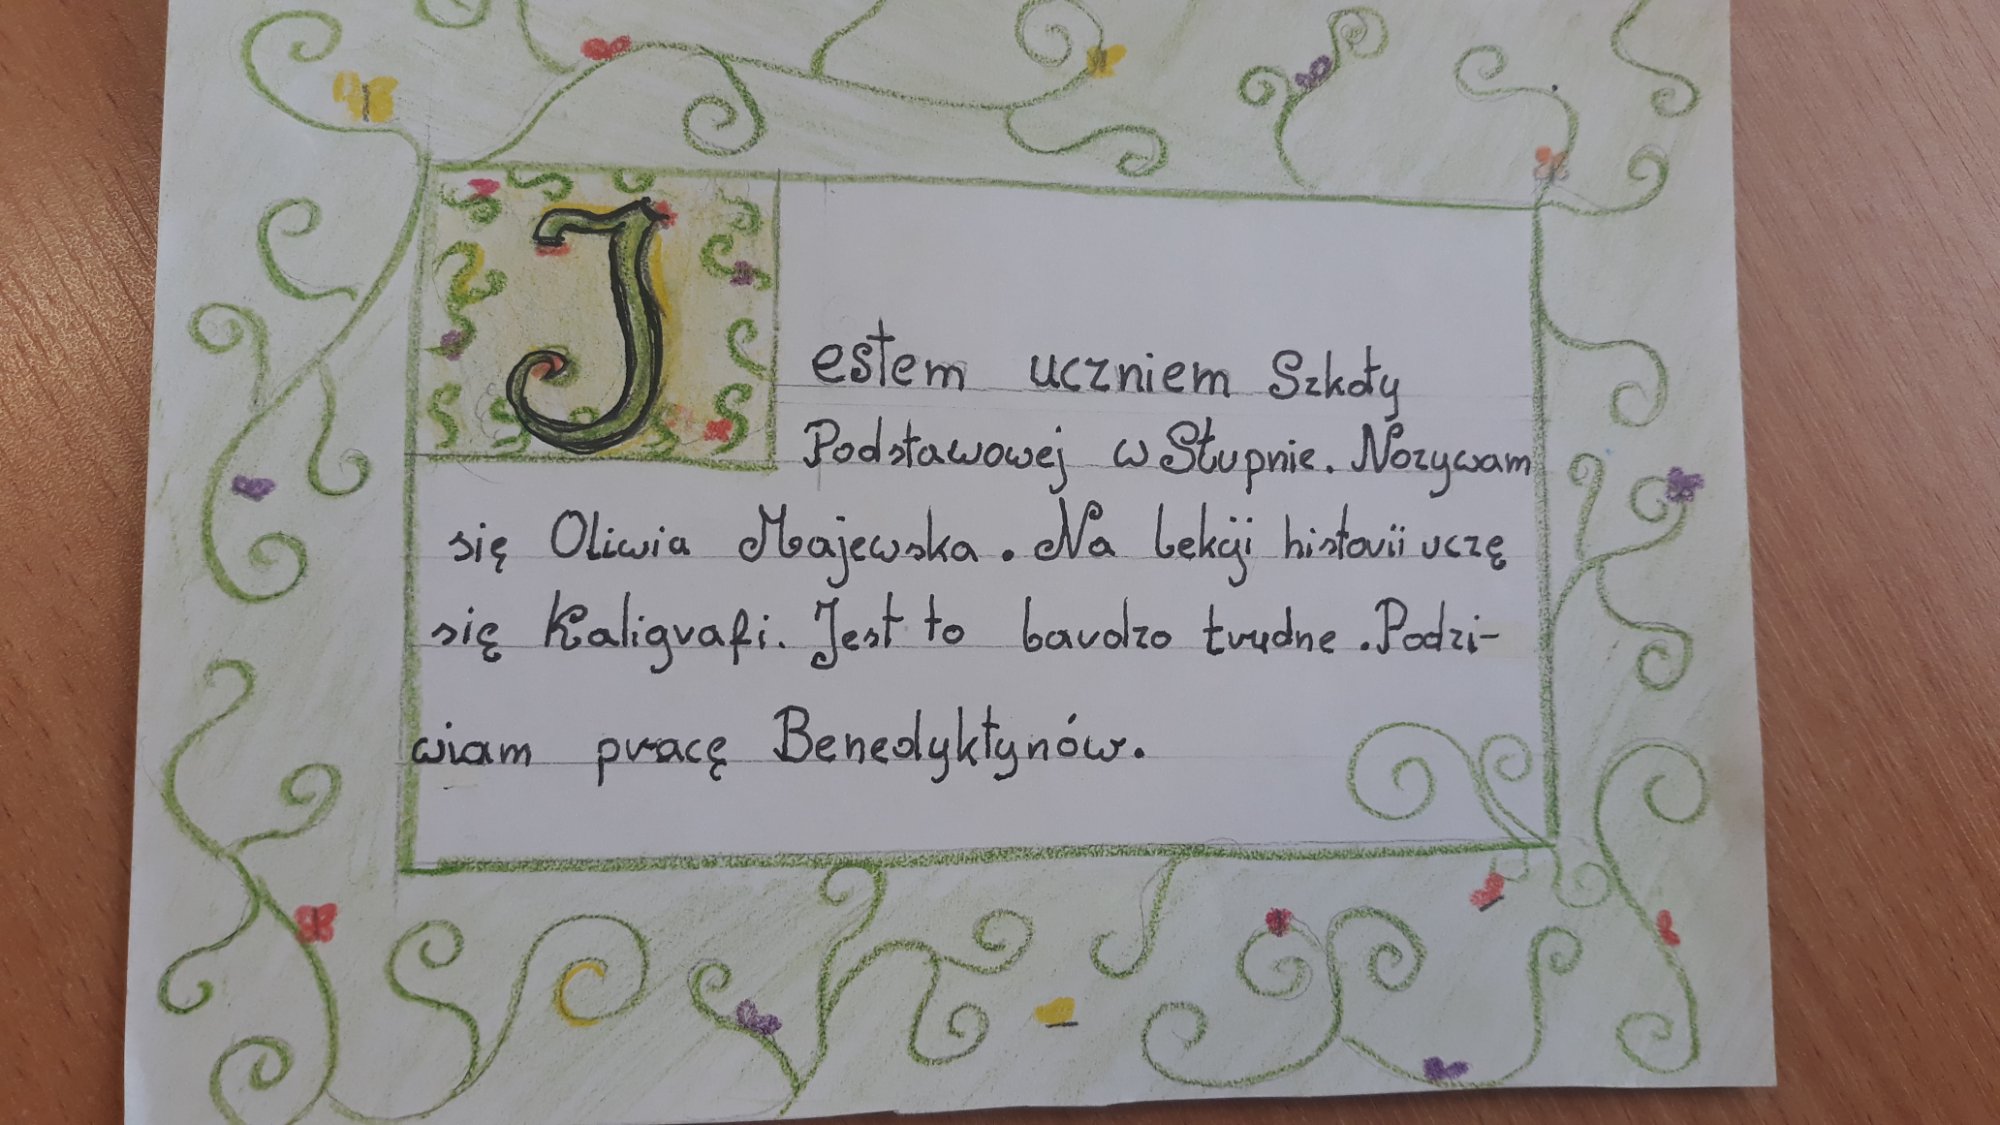 Jestem uczniem Szkoły
Podstawowej w Słupnie. Nazywam
się Oliwia Majewska. Na lekcji historii uczę
się Kaligrafi. Jest to bardzo trudne. Podzi-
wiam pracę Benedyktynów.